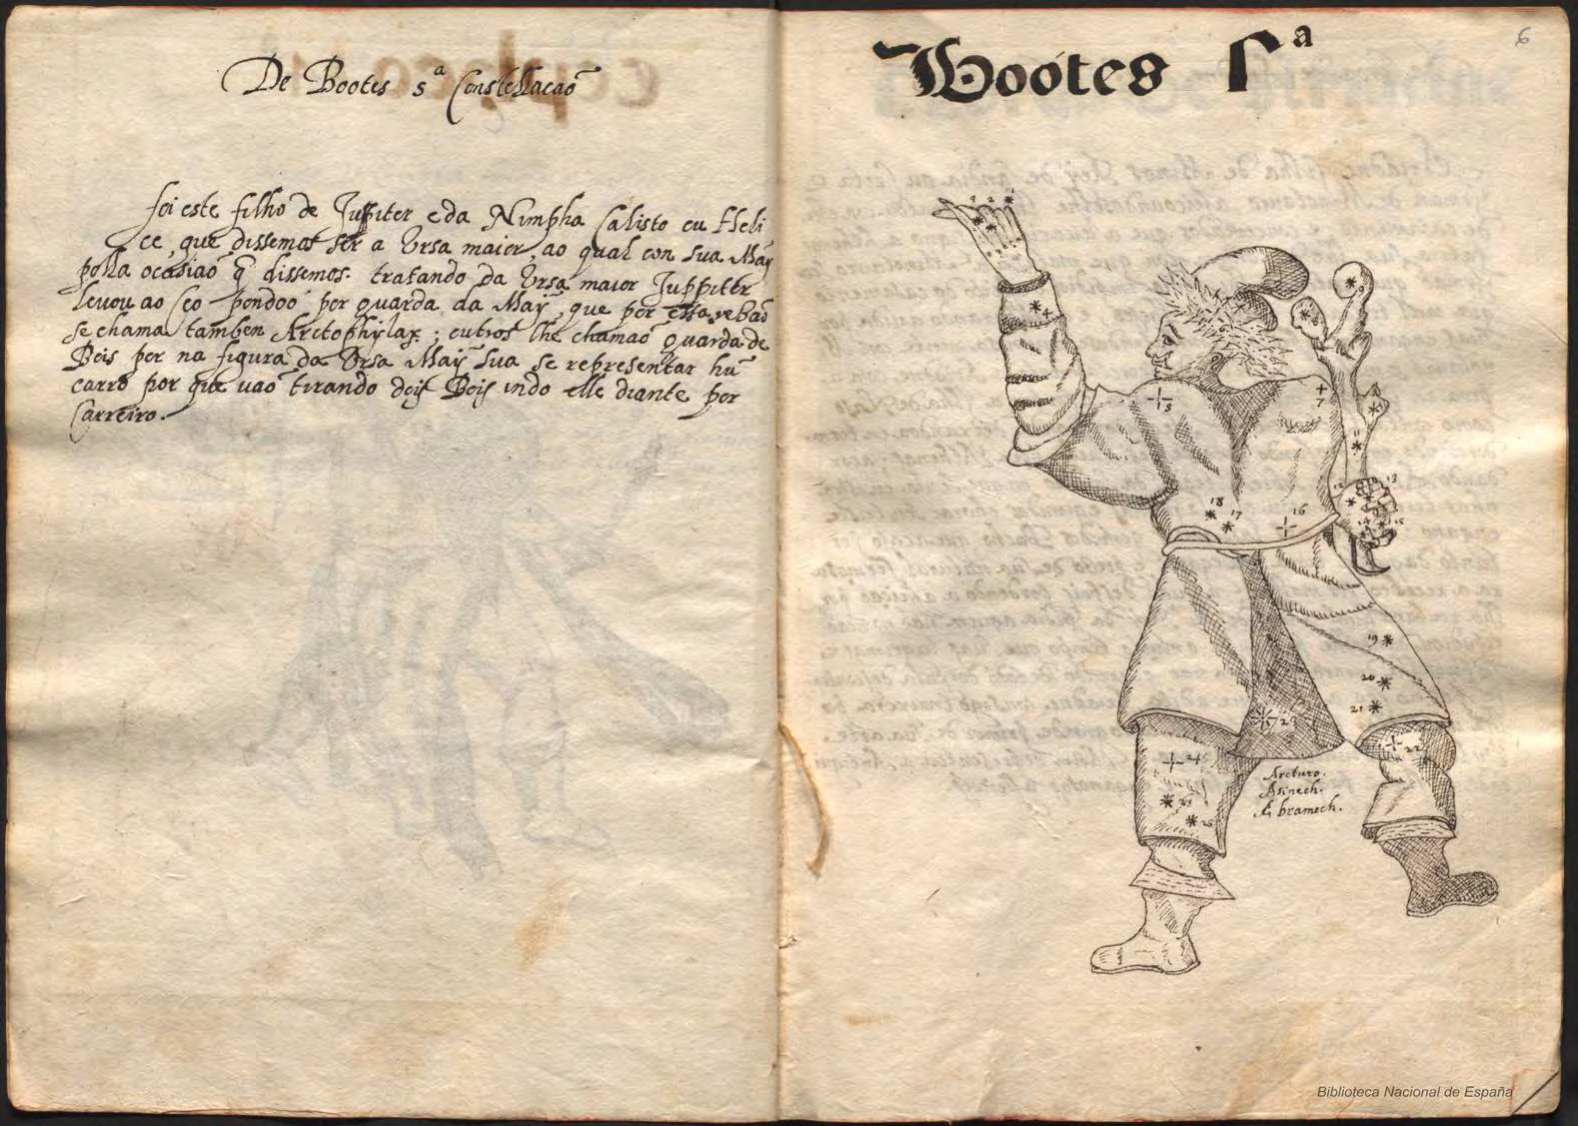 De Bootes 5ª Constellacaõ
foi este filho de Juppiter e da Nimpha Calisto ou Heli
ce, que dissemos ser a Ursa maior, ao qual con sua Maÿ
polla ocasiaõ q̃ dissemos. tratando da Ursa maior Juppiter
levou ao Ceo pondoo por guarda da Maÿ, que por esta rezaõ
se chama tamben Arctophylax; outros lhe chamaõ guarda de
Bois por na figura da Ursa Maÿ sua se representar hũ
carro por que vaõ tirando dois Bois indo elle diante por
Carreiro.
Bootes 5ª
6
5
7
18
17
16
19
20
21
23
22
24
Arcturo.
bramech.
Biblioteca Nacional de España